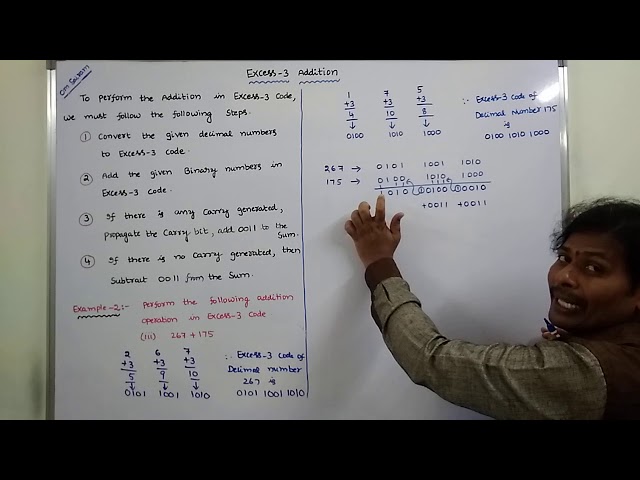 Om Sairam
Excess-3 Addition
To perform the Addition in Excess-3 Code,
we must follow the following Steps.
① Convert the given decimal numbers
to Excess-3 code.
② Add the given Binary numbers in
Excess-3 code.
③ If there is any Carry generated,
Propagate the Carry bit, add 0011 to the
Sum.
④ If there is no carry generated, then
Subtract 0011 from the Sum.
Example-2:- Perform the following addition
operation in Excess-3 Code
(iii) 267+175
2 6 7
+3 +3 +3
5 9 10
↓ ↓ ↓
0101 1001 1010
∴ Excess-3 Code of
Decimal number
267 is
0101 1001 1010
1 7 5
+3 +3 +3
4 10 8
↓ ↓ ↓
0100 1010 1000
∴ Excess-3 Code of
Decimal Number 175
is
0100 1010 1000
267 → 0101 1001 1010
175 → 0100 1010 1000
1010 ①0100 ①0010
+0011 +0011